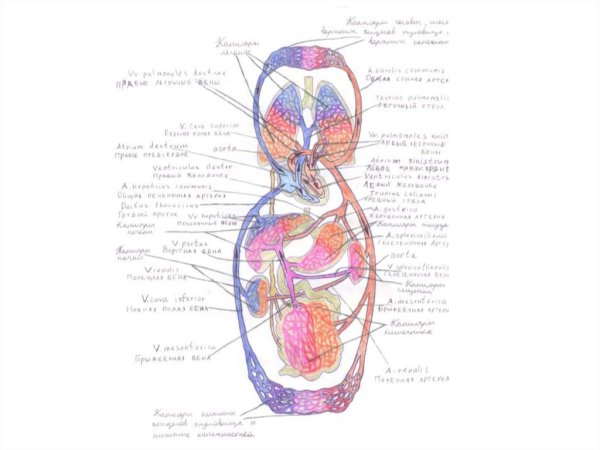 Капилляры головы, шеи
верхних отделов туловища,
верхних конечност
Капилляры
лёгких
Vv. pulmonales dextrae
ПРАВЫЕ ЛЕГОЧНЫЕ ВЕНЫ
V. cava superior
ВЕРХНЯЯ ПОЛАЯ ВЕНА
Atrium dextrum
ПРАВОЕ ПРЕДСЕРДИЕ
aorta
Ventriculus dexter
ПРАВЫЙ ЖЕЛУДОЧЕК
A. hepatica communis
ОБЩАЯ ПЕЧЕНОЧНАЯ АРТЕРИЯ
Ductus thoracicus
ГРУДНОЙ ПРОТОК
Капилляры
печени
Vv. hepaticae
ПЕЧЕНОЧНЫЕ ВЕНЫ
V. portae
ВОРОТНАЯ ВЕНА
Капилляры
почки
V. renalis
ПОЧЕЧНАЯ ВЕНА
V. cava inferior
НИЖНЯЯ ПОЛАЯ ВЕНА
V. mesenterica
БРЫЖЕЕЧНАЯ ВЕНА
Капилляры нижних
отделов туловища и
нижних конечностей
A. carotis communis
ОБЩАЯ СОННАЯ АРТЕР
Truncus pulmonalis
ЛЕГОЧНЫЙ СТВОЛ
Vv. pulmonales sinist
ЛЕВЫЕ ЛЕГОЧНЫЕ
ВЕНЫ
Atrium sinistrum
ЛЕВОЕ ПРЕДСЕРДИЕ
Ventriculus sinistr
ЛЕВЫЙ ЖЕЛУДОЧЕК
Truncus celiacus
ЧРЕВНЫЙ СТВОЛ
A. gastrica
ЖЕЛУДОЧНАЯ АРТЕРИЯ
Капилляры желудк
A. splenica/lienali
СЕЛЕЗЕНОЧН АРТЕР
aorta
V. splenica/lienalis
СЕЛЕЗЕНОЧНАЯ ВЕН
Капилляры
селезенки
A. mesenterica
БРЫЖЕЕЧНАЯ АРТЕРИ
Капилляры
кишечника
A. renalis
ПОЧЕЧНАЯ АРТЕРИЯ